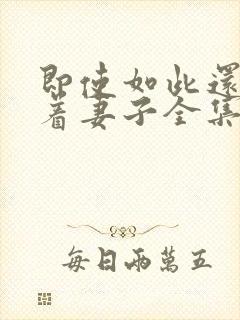 即使如此還
著妻子全集
每日兩萬五